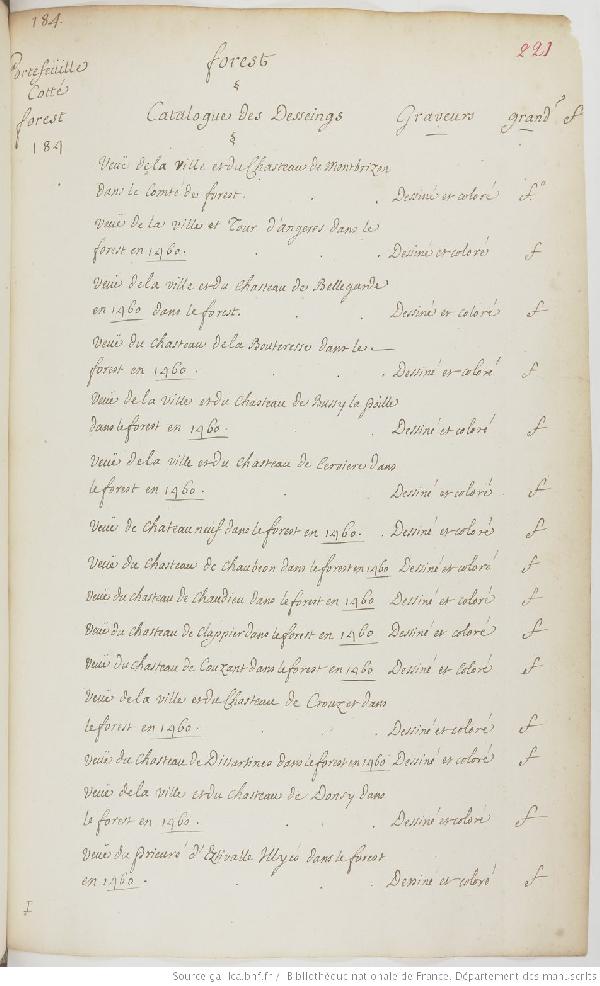 184.
221
Portefeüille
Cotté
forest
184
forest
§
Catalogue des Desseings Graveurs grand.r f
§
Veüe de la ville et du Chasteau de Montbrizon
dans le Comté de forest. . . Dessiné et coloré f.o
veüe de la ville et Tour d'angeres dans le
forest en 1460. . . Dessiné et coloré f
Veüe de la ville et du Chasteau de Bellegarde
en 1460 dans le forest. . . Dessiné et coloré f
Veuë du Chasteau de la Bouteresse dans le
forest en 1460. . . Dessiné et coloré f
Veüe de la ville et du Chasteau de Bussy la poille
dans le forest en 1460. . . Dessiné et coloré f
Veüe de la ville et du Chasteau de Cerviere dans
le forest en 1460. . . Dessiné et coloré f
Veüe de Chateau neuf dans le forest en 1460. . Dessiné et coloré f
Veüe du Chasteau de Chaubeon dans le forest en 1460 Dessiné et coloré f
Veüe du Chasteau de Chaudieu dans le forest en 1460 Dessiné et coloré f
Veüe du Chasteau de Clappier dans le forest en 1460 Dessiné et coloré f
Veüe du Chasteau de Couzant dans le forest en 1460 Dessiné et Coloré f
Veüe de la ville et du Chasteau de Crouzet dans
le forest en 1460. . . Dessiné et coloré f
Veüe du Chasteau de dans le forest en 1460 Dessiné et coloré f
Veüe de la ville et du chasteau de Donsy dans
le forest en 1460. . . Dessiné et coloré f
Veüe du prieuré d' dans le forest
en 1460. . . Dessiné et coloré f
I
Source gallica.bnf.fr / Bibliothèque nationale de France, Département des manuscrits